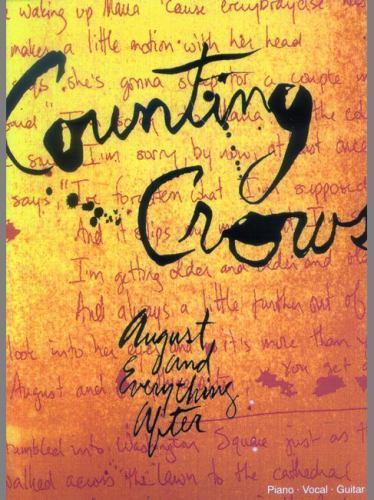 waking up Maria 'cause everybody else has
makes a little motion with her head
says she's gonna sleep for a couple m
Counting
I'm sorry, by now, at not once
says, "I've forgotten what I'm supposed
Crows
And it slips
I'm getting older and older and old
And always a little further out of
August
and
look into her eyes it's more than y
Everything
August and You get a
After
tumbled into Washington Square just as t
walked across the lawn to the cathedral
Piano · Vocal · Guitar